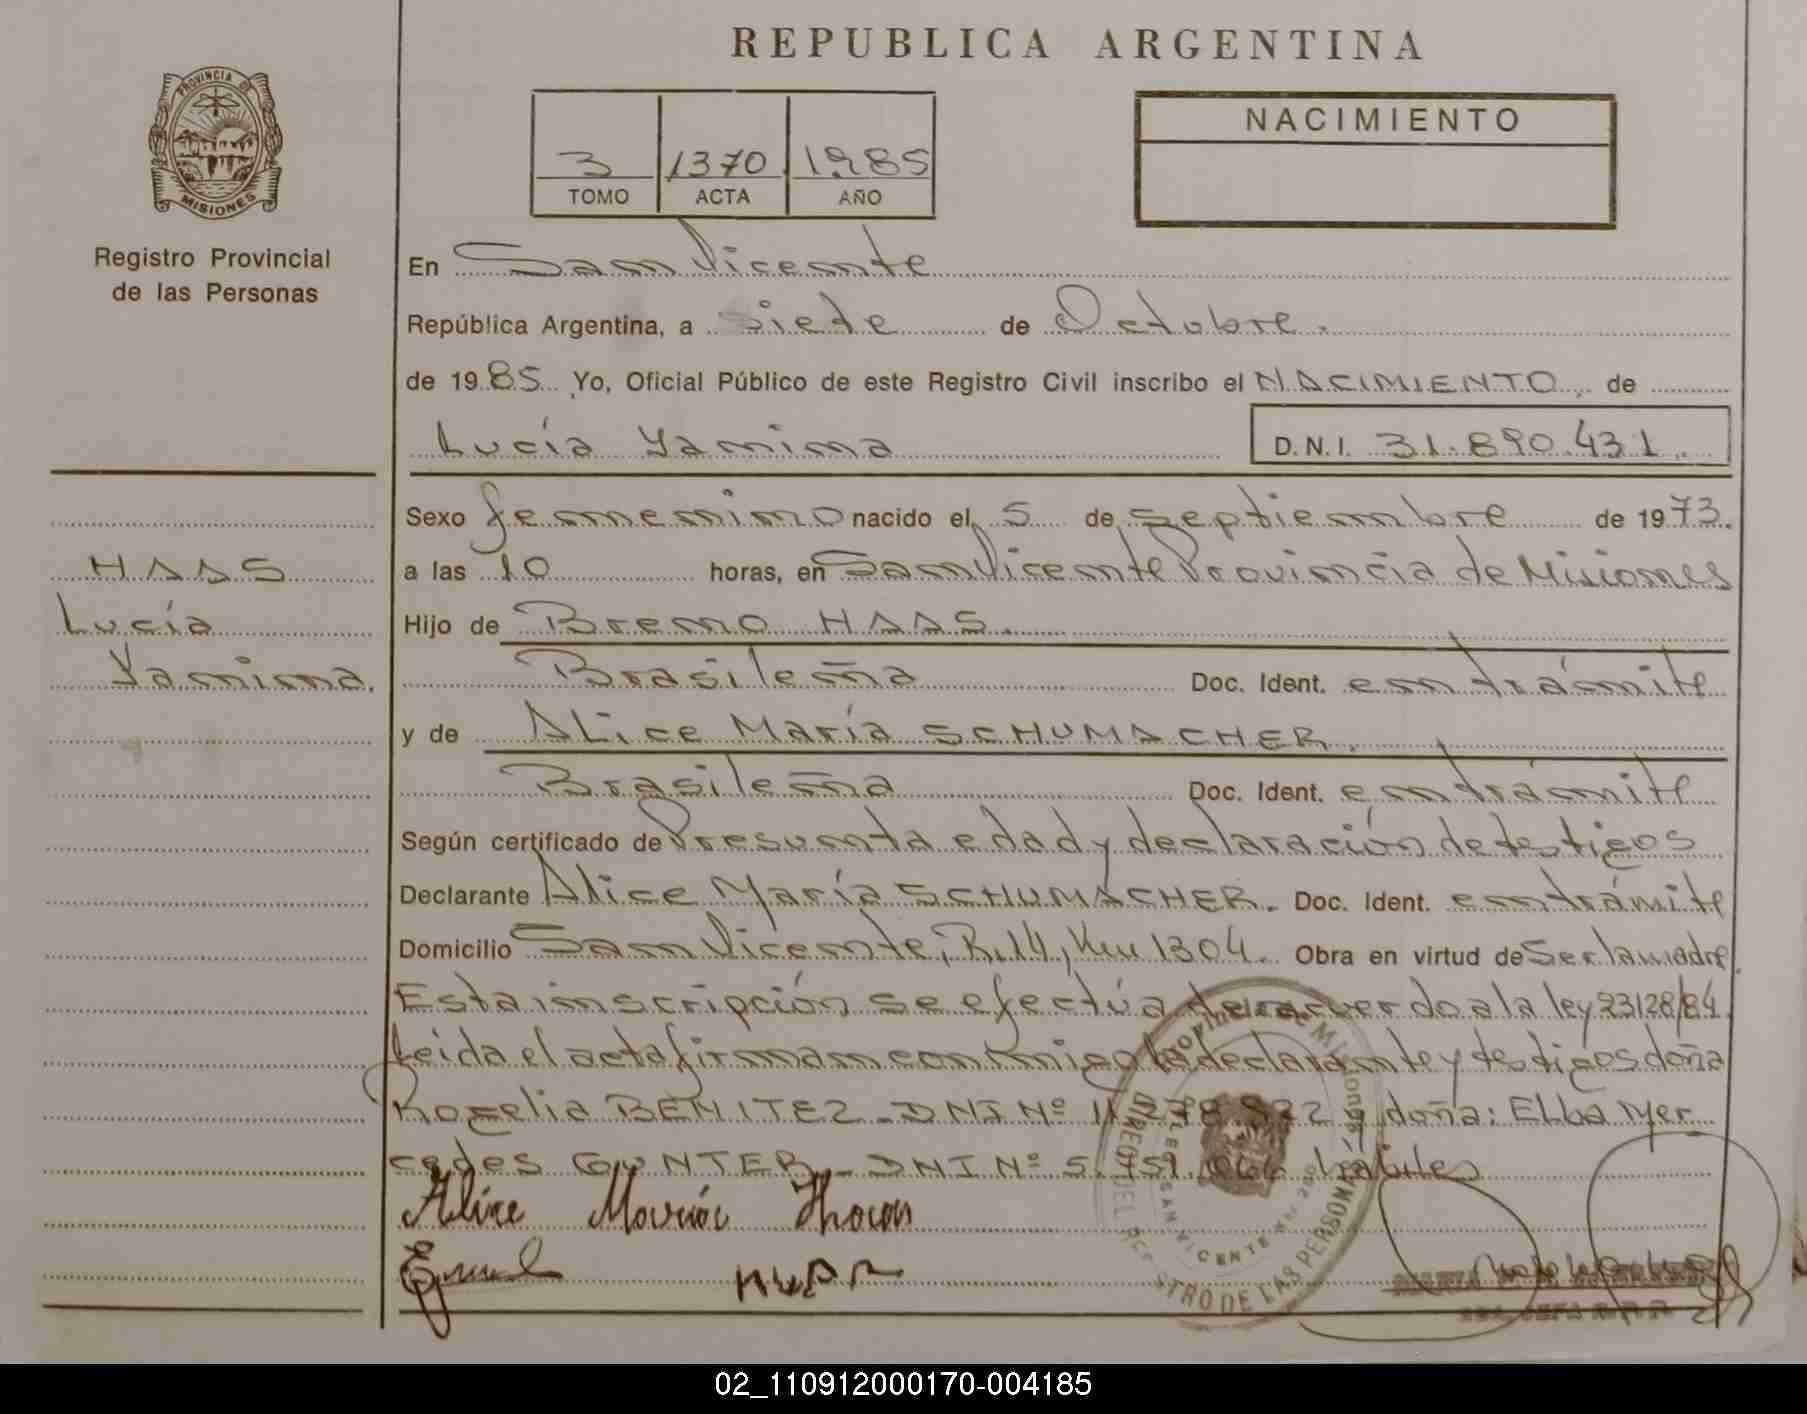 REPUBLICA ARGENTINA
PROVINCIA DE
MISIONES
Registro Provincial
de las Personas
3 1370 1.985
TOMO ACTA AÑO
NACIMIENTO
En San Vicente
República Argentina, a siete de Octubre.
de 1985 Yo, Oficial Público de este Registro Civil inscribo el NACIMIENTO de
Lucía Yanina D.N.I. 31.890.431
HAAS
Lucía
Yanina.
Sexo femenino nacido el 5 de septiembre de 1973.
a las 10 horas, en San Vicente Provincia de Misiones
Hijo de Breno HAAS.
Brasileña Doc. Ident. en trámite
y de ALice María SCHUMACHER.
Brasileña Doc. Ident. en trámite
Según certificado de Presunta edad y declaración de testigos
Declarante Alice María SCHUMACHER. Doc. Ident. en trámite
Domicilio San Vicente, R.14, Km 1304. Obra en virtud de Ser la madre.
Esta inscripción se efectúa de acuerdo a la ley 23128/84.
Leída el acta firman conmigo la declarante y testigos doña
Rogelia BENITEZ - DNI Nº 11.278.922 y doña: ELba Mer
cedes GUNTER - DNI Nº 5. hábiles
Alice
Provincia de Misiones
SAN VICENTE
REGISTRO DE LAS PERSONAS
02_110912000170-004185